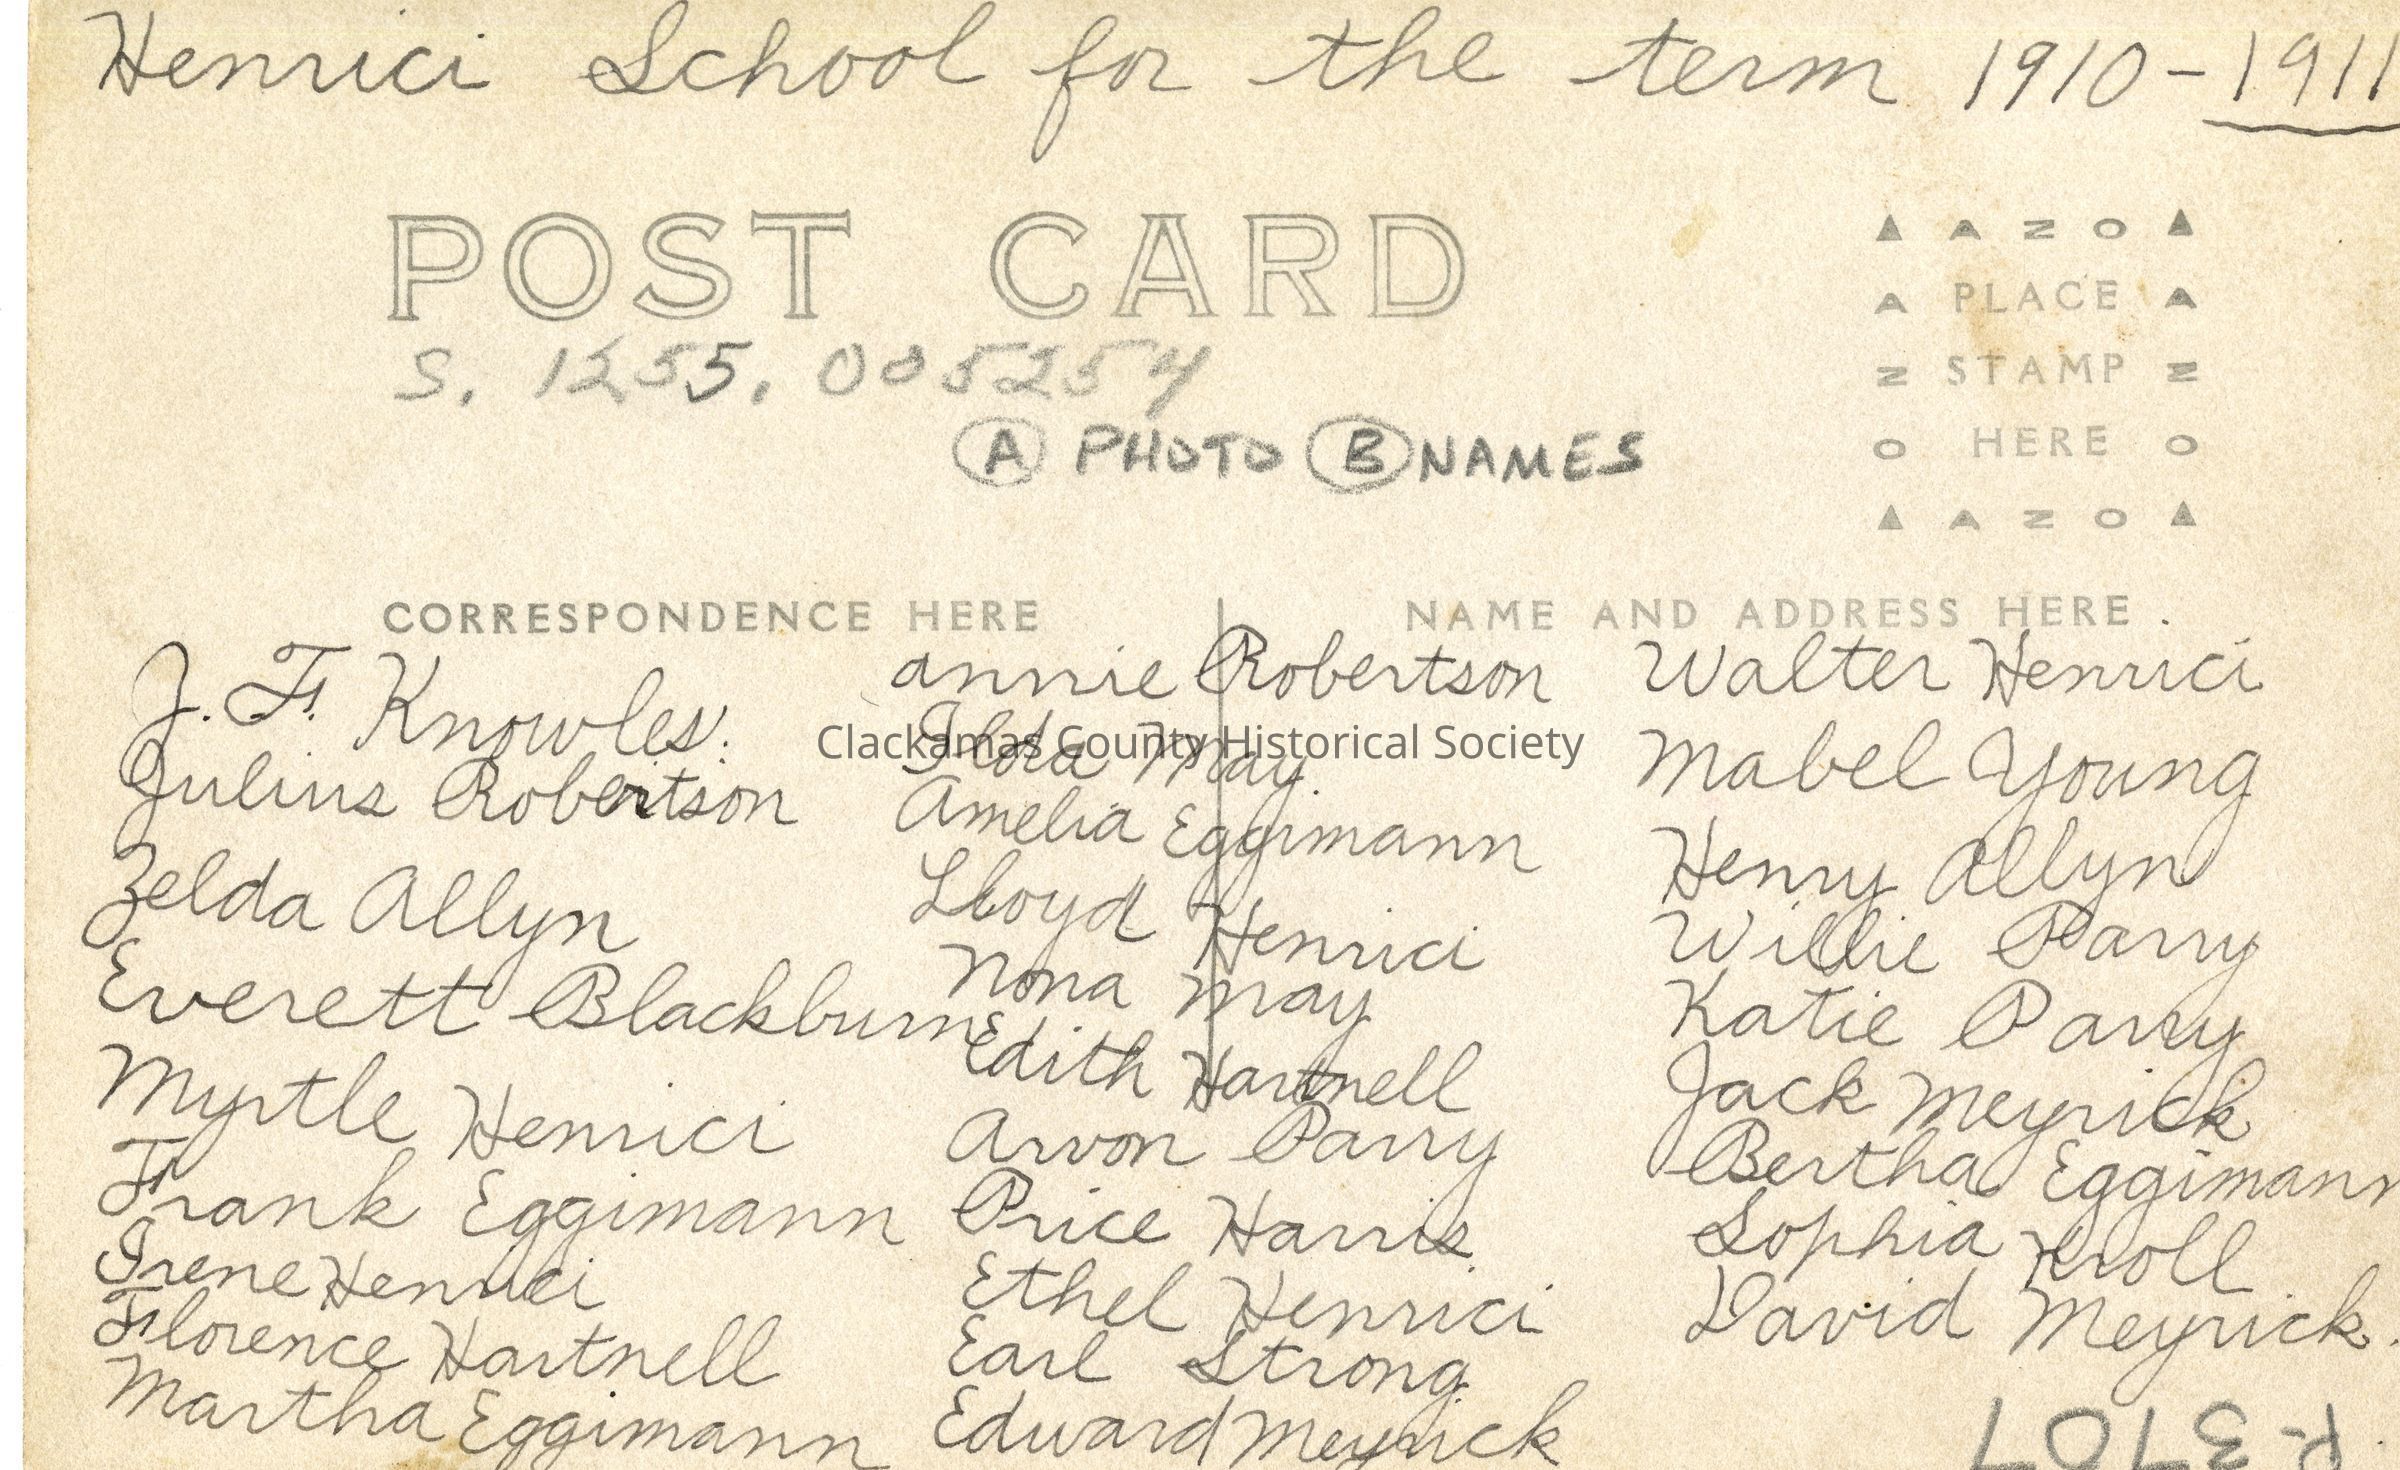 Henrici School for the term 1910-1911
POST CARD
AZO
PLACE
STAMP
HERE
AZO
S. 1255. 005254
A PHOTO B NAMES
CORRESPONDENCE HERE
NAME AND ADDRESS HERE
J. F. Knowles.
Julius Robertson
Zelda Allyn
Everett Blackburn
Myrtle Henrici
Frank Eggimann
Irene Henrici
Florence Hartnell
Martha Eggimann
Annie Robertson
May
Amelia Eggimann
Lloyd Henrici
Nona May
Edith Hartnell
Arvon Parry
Price Harris
Ethel Henrici
Earl Strong
Edward Meyrick
Walter Henrici
Mabel Young
Henry Allyn
Willie Parry
Katie Parry
Jack Meyrick
Bertha Eggimann
Sophia Kroll
David Meyrick.
Clackamas County Historical Society